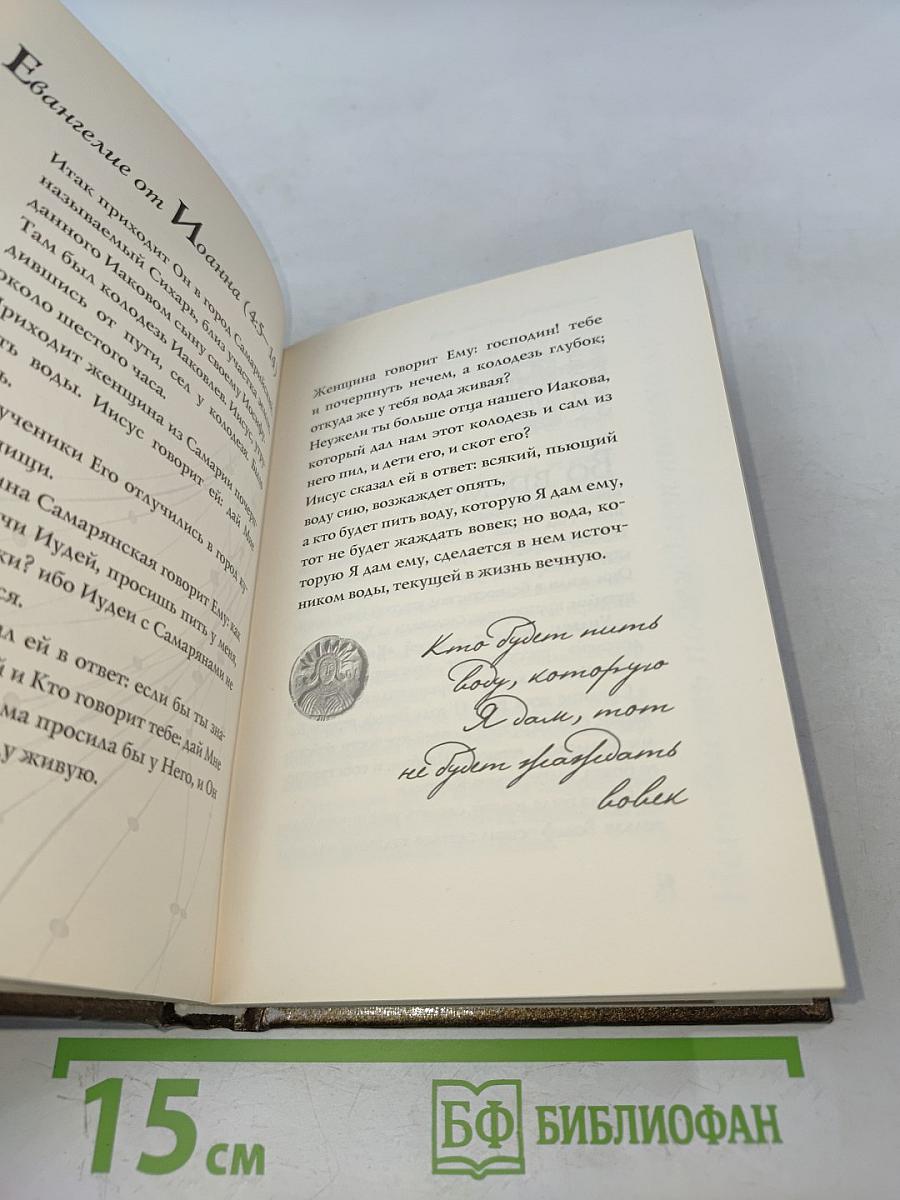 Евангелие от Иоанна (4,5—14)
Итак приходит Он в город Самарийский,
называемый Сихарь, близ участка земли,
данного Иаковом сыну своему Иосифу.
Там был колодезь Иаковлев. Иисус, утру-
дившись от пути, сел у колодезя. Было
около шестого часа.
Приходит женщина из Самарии почерп-
ть воды. Иисус говорит ей: дай Мне
ь.
ученики Его отлучились в город ку-
пищи.
ина Самарянская говорит Ему: как
чи Иудей, просишь пить у меня,
ки? ибо Иудеи с Самарянами не
ся.
ал ей в ответ: если бы ты зна-
й и Кто говорит тебе: дай Мне
ама просила бы у Него, и Он
ду живую.
Женщина говорит Ему: господин! тебе
и почерпнуть нечем, а колодезь глубок;
откуда же у тебя вода живая?
Неужели ты больше отца нашего Иакова,
который дал нам этот колодезь и сам из
него пил, и дети его, и скот его?
Иисус сказал ей в ответ: всякий, пьющий
воду сию, возжаждет опять,
а кто будет пить воду, которую Я дам ему,
тот не будет жаждать вовек; но вода, ко-
торую Я дам ему, сделается в нем источ-
ником воды, текущей в жизнь вечную.
Кто будет пить
воду, которую
Я дам, тот
не будет жаждать
вовек
15 см
БФ БИБЛИОФАН